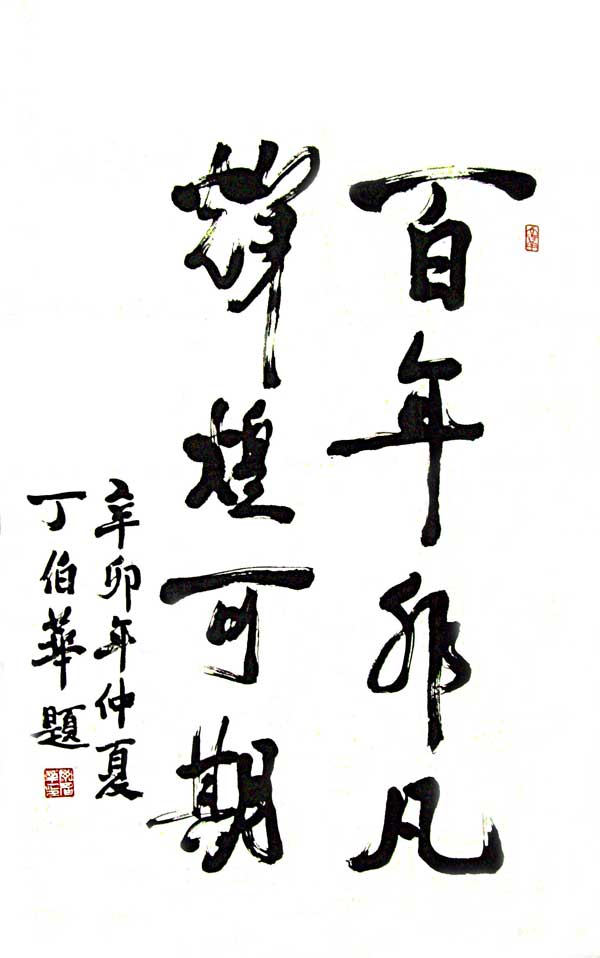 百年非凡
辉煌可期
辛卯年仲夏
丁伯華題